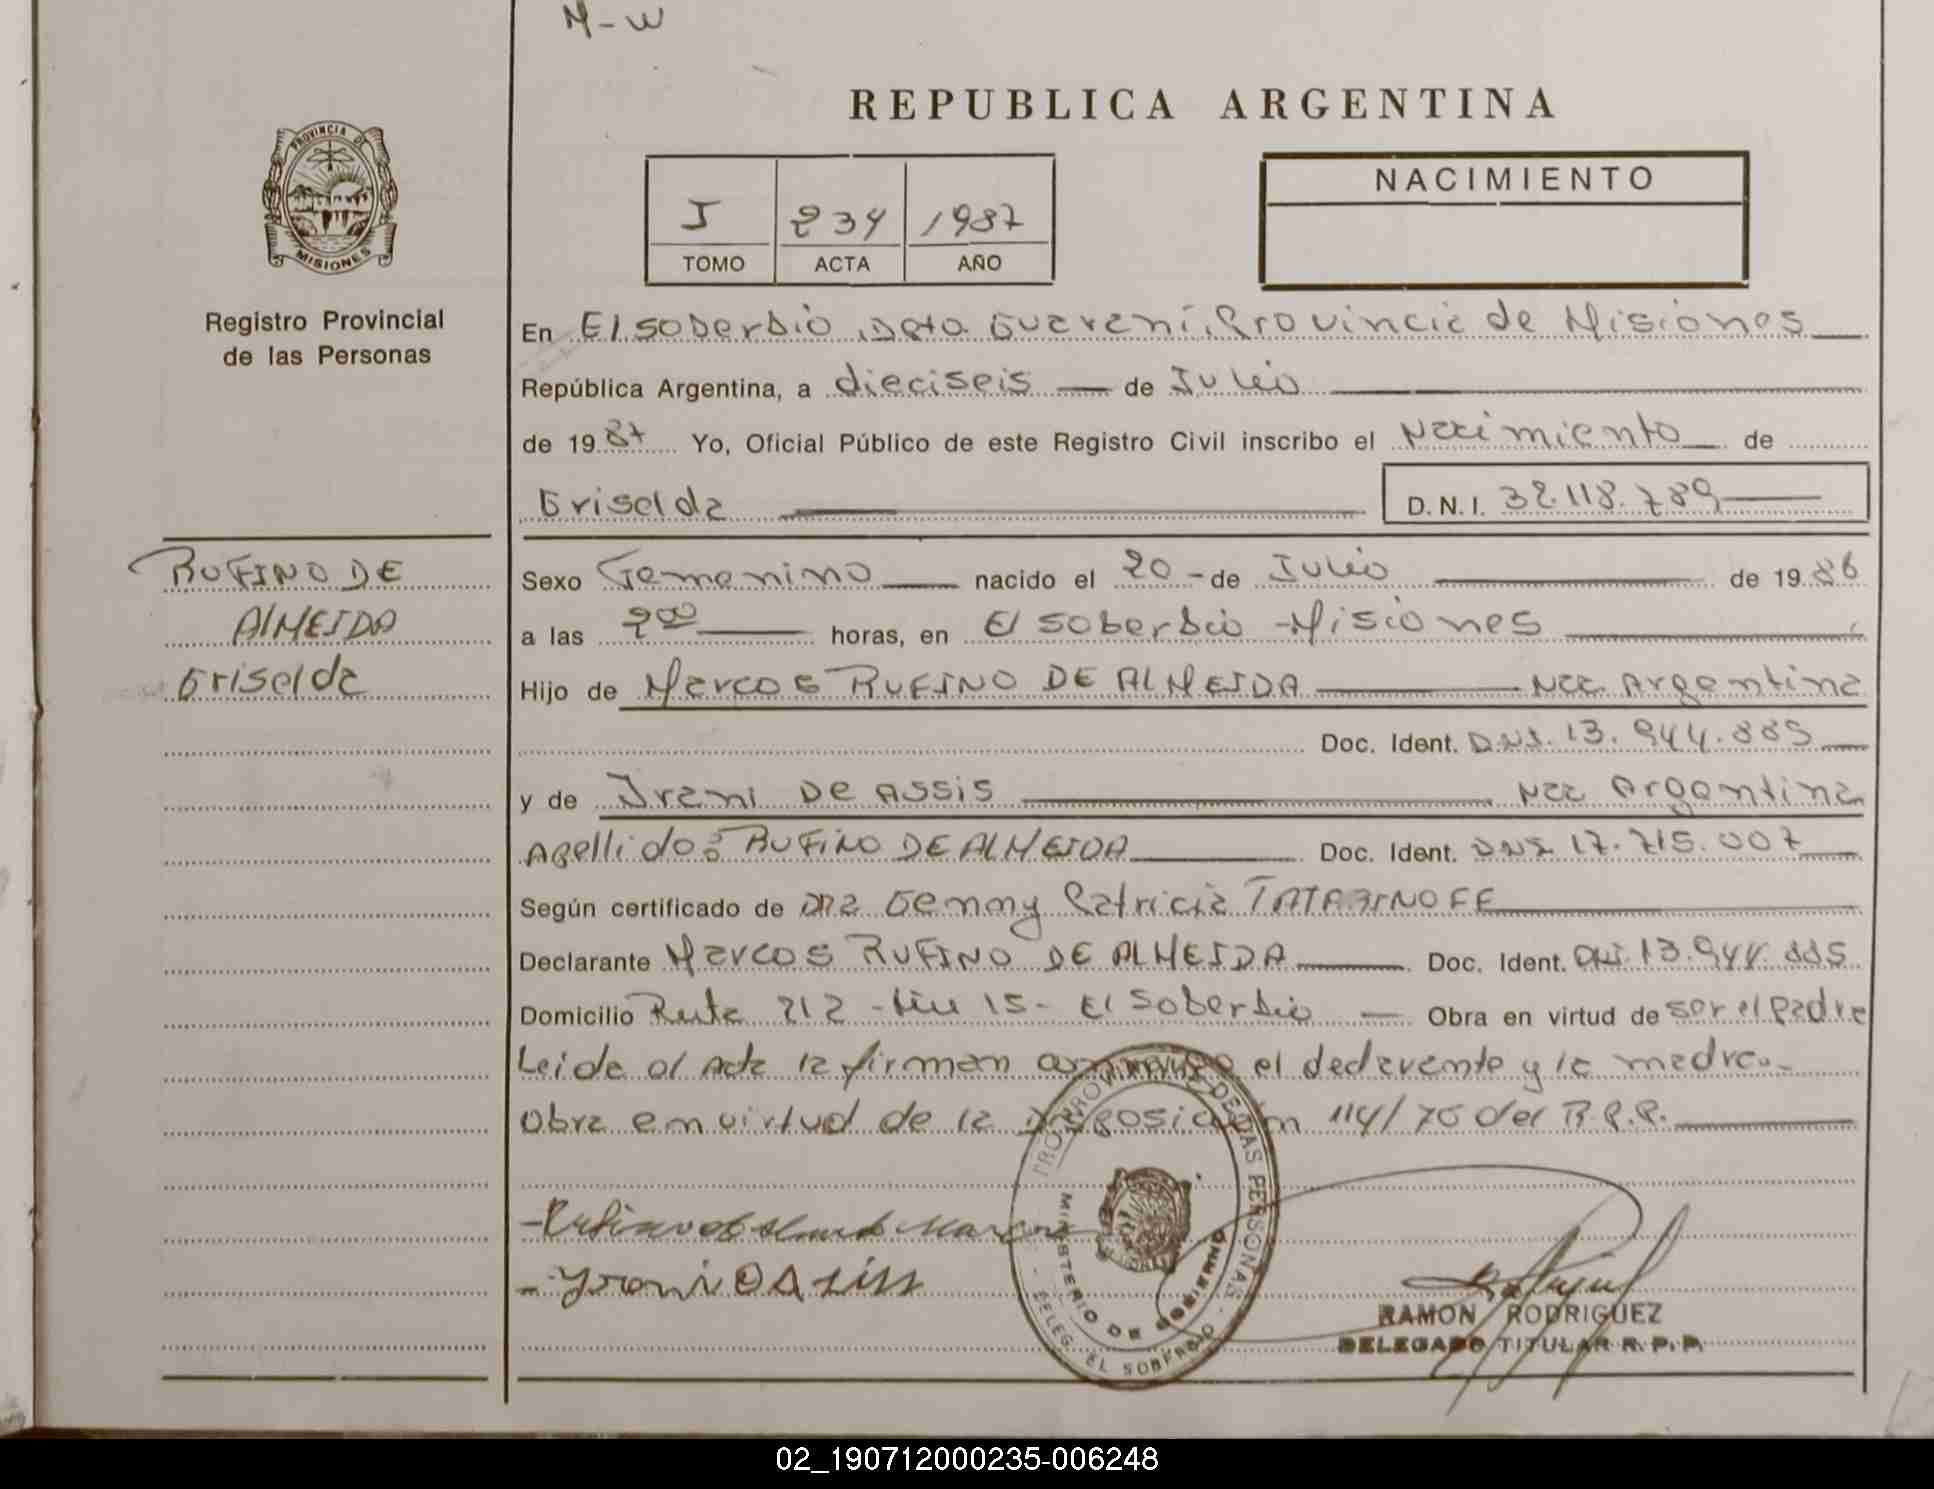 M-W
REPUBLICA ARGENTINA
PROVINCIA DE
MISIONES
Registro Provincial
de las Personas
I 234 1987
TOMO ACTA AÑO
NACIMIENTO
En El soberbio, Dpto. Guaraní, Provincia de Misiones
República Argentina, a dieciseis de Julio
de 1987 Yo, Oficial Público de este Registro Civil inscribo el Nacimiento de
Griselda D.N.I. 32.118.789
RUFINO DE
ALMEIDA
Griselda
Sexo Femenino nacido el 20 - de Julio de 1986
a las 2 00 horas, en El soberbio - Misiones
Hijo de Marcos RUFINO DE ALMEIDA Nac Argentina
Doc. Ident. DNI. 13.944.885
y de Irani DE ASSIS Nac Argentina
Apellido: RUFINO DE ALMEIDA Doc. Ident. DNI. 17.715.007
Según certificado de DRA Genny Patricia TATARINOFF
Declarante Marcos RUFINO DE ALMEIDA Doc. Ident. DNI. 13.944.885
Domicilio Ruta 212 - Km 15 - El Soberbio Obra en virtud de ser el padre
Leida el Acta la firman el declarante y la madre.-
Obra en virtud de la Disposición 114/76 del R.P.P.
REGISTRO PROVINCIAL DE LAS PERSONAS
MINISTERIO DE GOBIERNO
DELEG. EL SOBERBIO
RAMON RODRIGUEZ
DELEGADO TITULAR R.P.P.
02_190712000235-006248